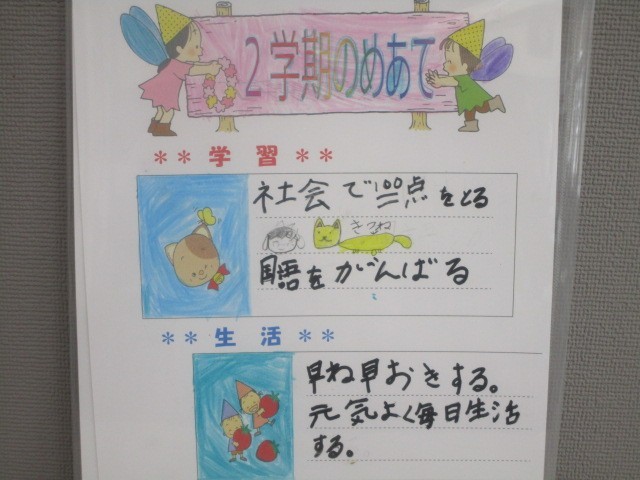 2学期のめあて
** 学習 **
社会で100点をとる
きつね
国語をがんばる
** 生活 **
早ね早おきする。
元気よく毎日生活
する。